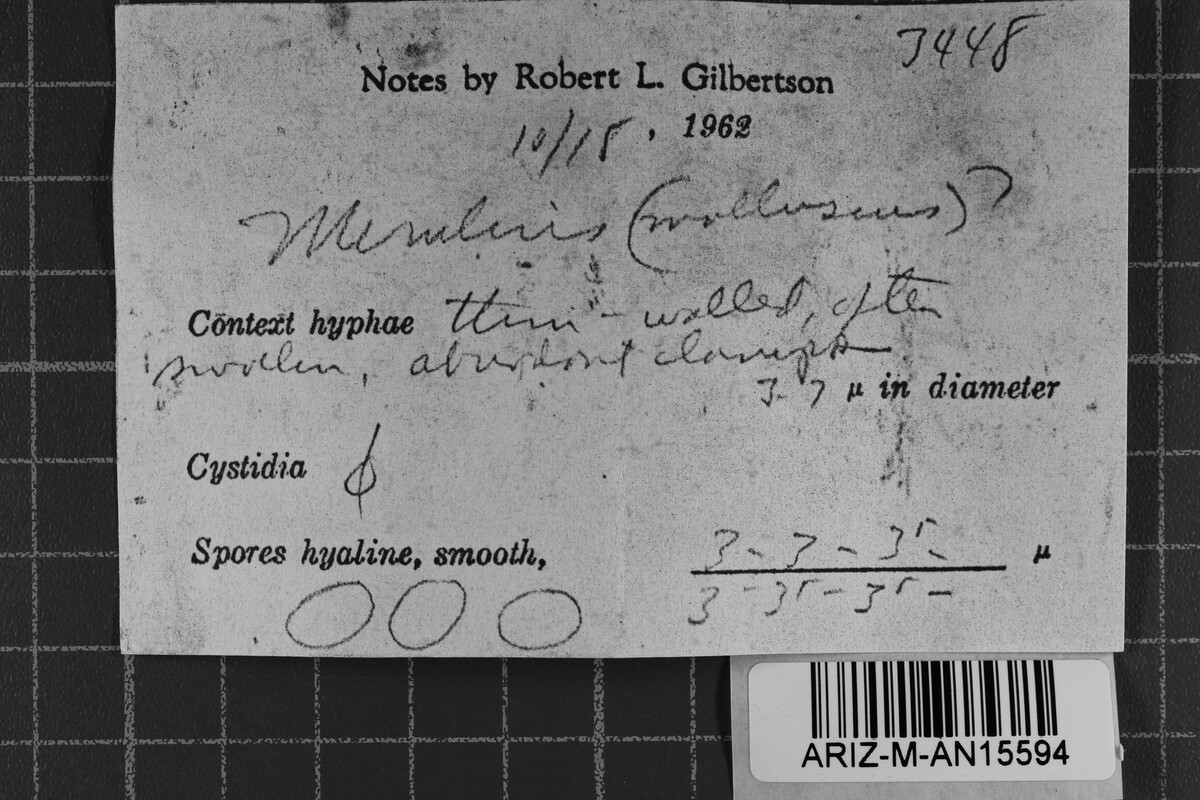 3448
Notes by Robert L. Gilbertson
10/18, 1962
Merulius (molluscus)?
Context hyphae thin-walled, often
swollen, abundant clamps
3-7 µ in diameter
Cystidia ϕ
Spores hyaline, smooth,
3 - 3 - 35 - µ
3 - 35 - 35 -
ARIZ-M-AN15594